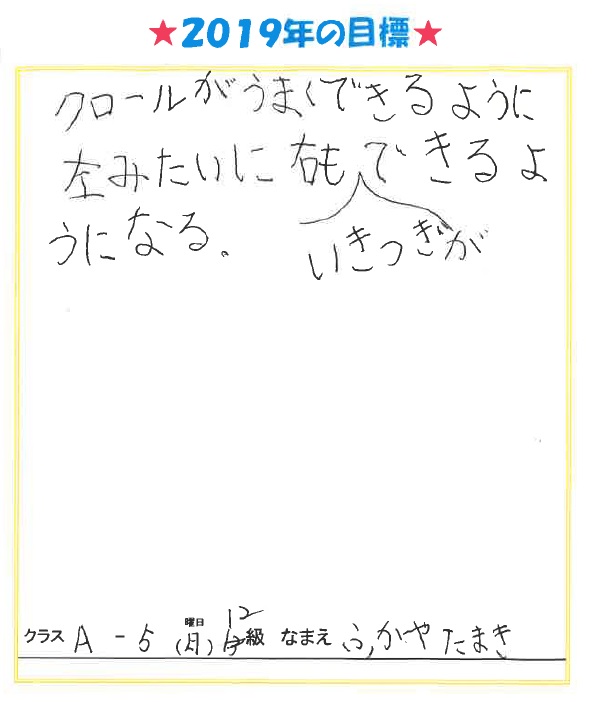 ★2019年の目標★
クロールがうまくできるように
左みたいに右もできるよ
うになる。
いきつぎが
クラス A-5 曜日(月) 12級 なまえ ふかやたまき